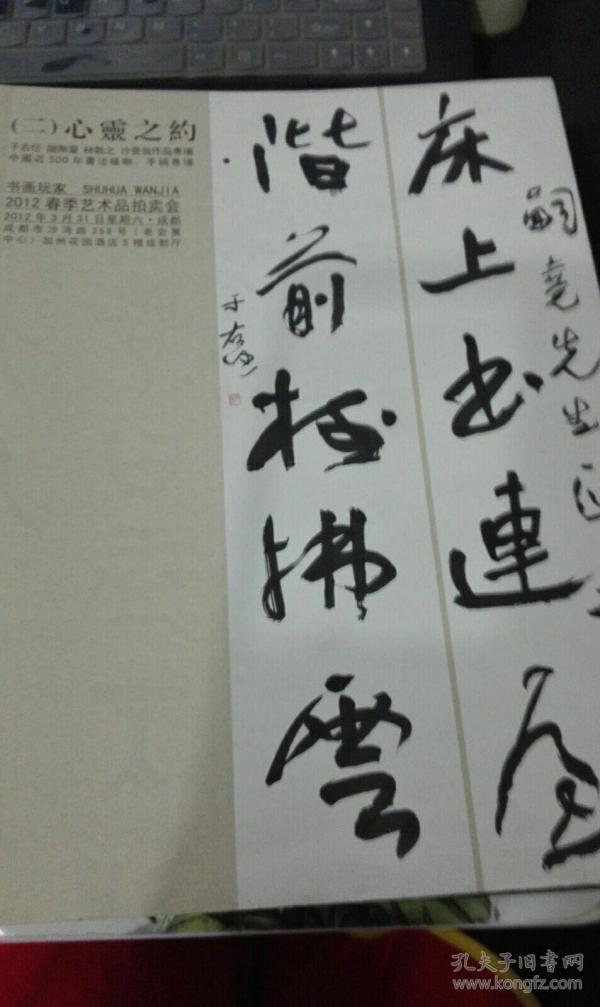 (二)心靈之約
于右任 謝無量 林散之 沙孟海作品專場
中國近500年書法楹聯、手稿專場
书画玩家 SHUHUA WANJIA
2012春季艺术品拍卖会
2012年3月31日星期六·成都
成都市沙湾路258号(老会展
中心)加州花园酒店5楼成都厅
嗣堯先生正
床上书連屋
階前树拂雲
于右任
孔夫子旧书网
www.kongfz.com